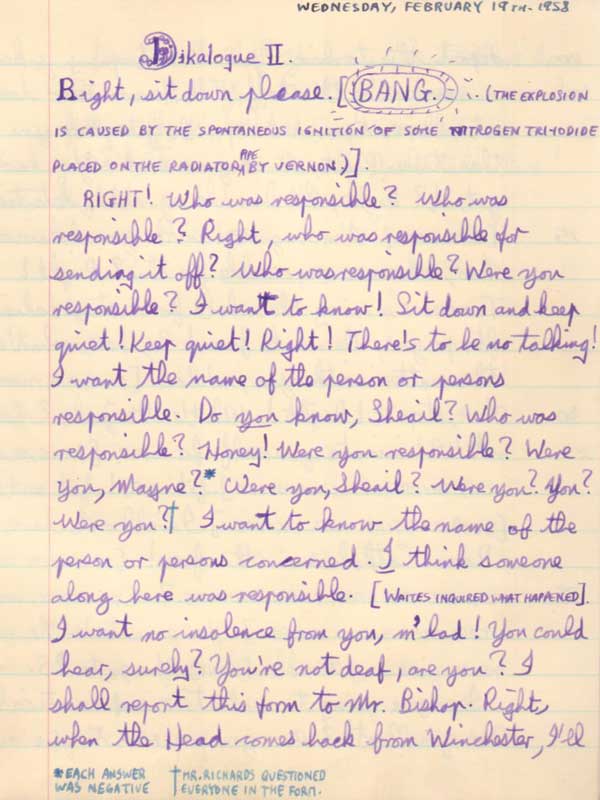 WEDNESDAY, FEBRUARY 19TH - 1958
Dikalogue II.
Right, sit down please. [BANG. (THE EXPLOSION
IS CAUSED BY THE SPONTANEOUS IGNITION OF SOME NITROGEN TRI-IODIDE
PLACED ON THE RADIATOR PIPE BY VERNON)].
RIGHT! Who was responsible? Who was
responsible? Right, who was responsible for
sending it off? Who was responsible? Were you
responsible? I want to know! Sit down and keep
quiet! Keep quiet! Right! There's to be no talking!
I want the name of the person or persons
responsible. Do you know, Sheail? Who was
responsible? Honey! Were you responsible? Were
you, Mayne?* Were you, Sheail? Were you? You?
Were you?† I want to know the name of the
person or persons concerned. I think someone
along here was responsible. [WAITES INQUIRED WHAT HAPPENED].
I want no insolence from you, m'lad! You could
hear, surely? You're not deaf, are you? I
shall report this form to Mr. Bishop. Right,
when the Head comes back from Winchester, I'll
*EACH ANSWER
WAS NEGATIVE
†MR. RICHARDS QUESTIONED
EVERYONE IN THE FORM.